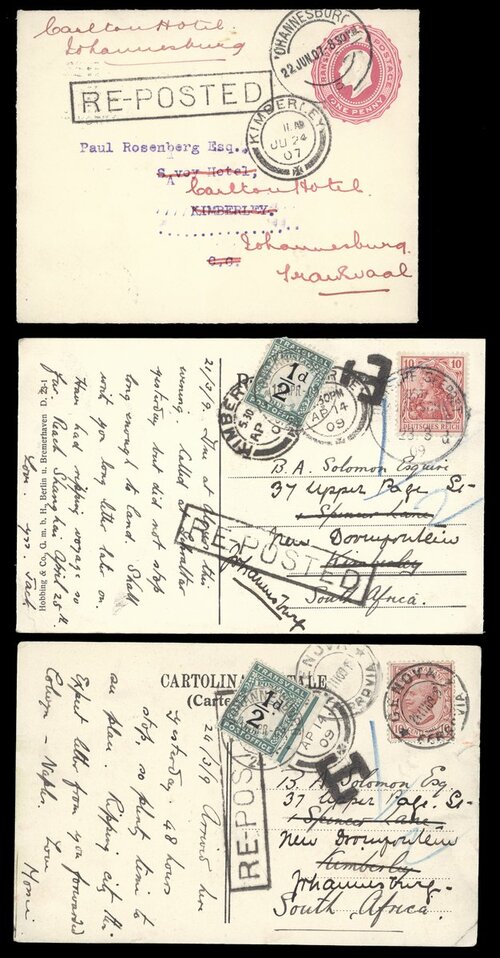 Carlton Hotel
Johannesburg
RE-POSTED
JOHANNESBURG
22 JUN 07·8 30PM
TRANSVAAL POSTAGE
ONE PENNY
KIMBERLEY
JU 24
07
Paul Rosenberg Esq.,
Savoy Hotel,
Carlton Hotel.
KIMBERLEY.
Johannesburg.
C.C.
Transvaal
21/3/9. Due at this
evening. Called at Gibraltar
yesterday but did not stop
long enough to land. Shall
write you long letter later on.
Have had ripping voyage so
far. Reach Shanghai April 25th.
Love. Jack
Hobbing & Co. G. m. b. H. Berlin u. Bremerhaven
TRANSVAAL
½d
POST OFFICE
KIMBERLEY
5.30
AP
AP 14
09
T
10 10
DEUTSCHES REICH
09
B. A. Solomon Esquire
37 Upper Page St-
Spencer Lane
New Doornfontein
Kimberley
Johannesburg
South Africa.
RE-POSTED
CARTOLINA POSTALE
(Carte
24/3/9 Arrived here
yesterday. 48 hours
stop, so plenty time to
see place. Ripping city this.
Expect letter from you forwarded
Colwyn - Naples.
Love
TRANSVAAL
½d
POST OFFICE
AP 14
09
T
GENOVA
FERROVIA
GENOVA
FERROVIA
RE-POS
B. A. Solomon Esq.
37 Upper Page St-
Spencer Lane
New Doornfontein
Kimberley
Johannesburg-
South Africa.